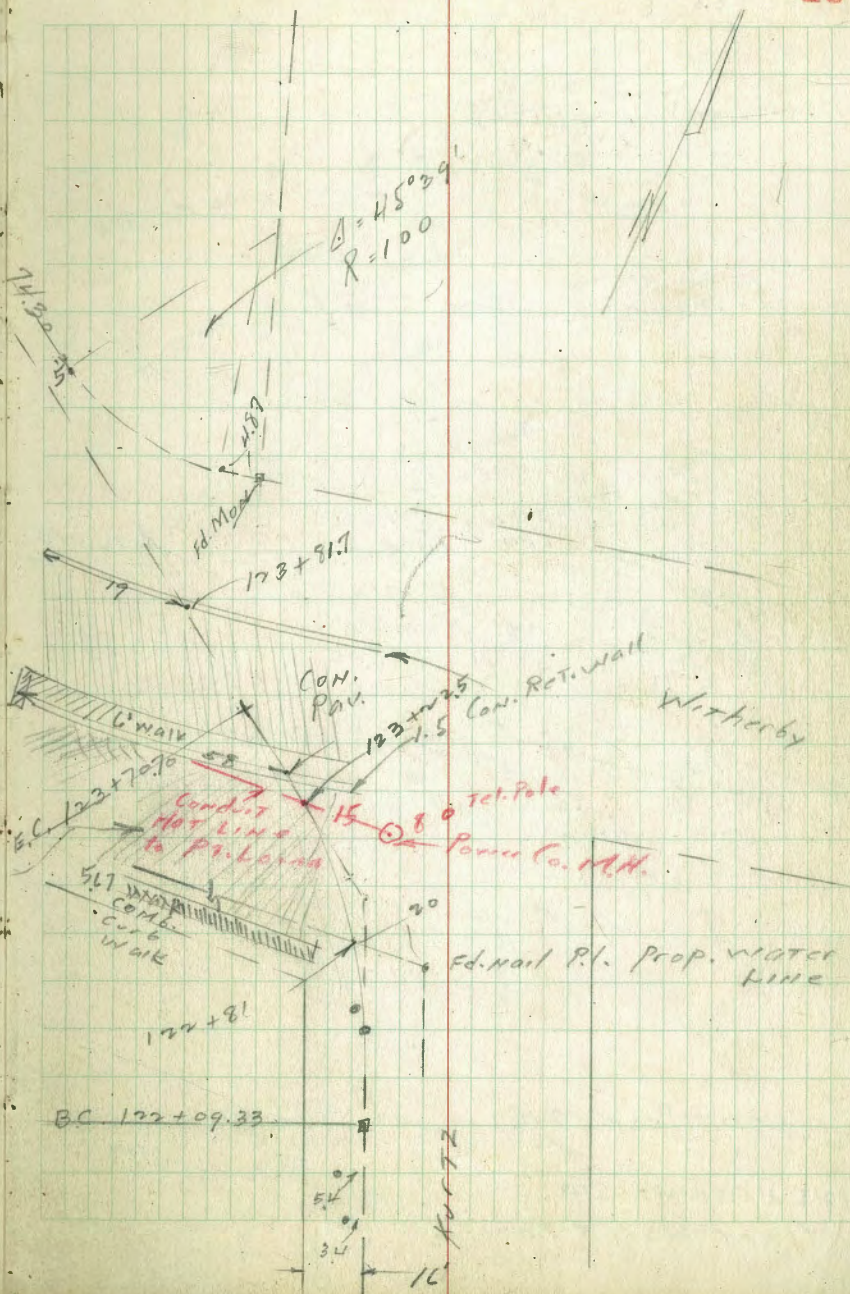 Δ = 45°39'
R = 100
74.30
4.87
Fd. Mon
123+81.7
19
Con.
Pav.
123+22.5
1.5 Con. Ret. Wall
Witherby
6' Walk
58
E.C. 123+70.70
Conduit
HOT LINE
to Pt. Loma
15
8
Tel. Pole
Power Co. M.H.
5.67
Comb.
Curb
Walk
20
Fd. Nail P.I. Prop. Water
Line
122+81
B.C. 122+09.33
54
34
Kurtz
16'